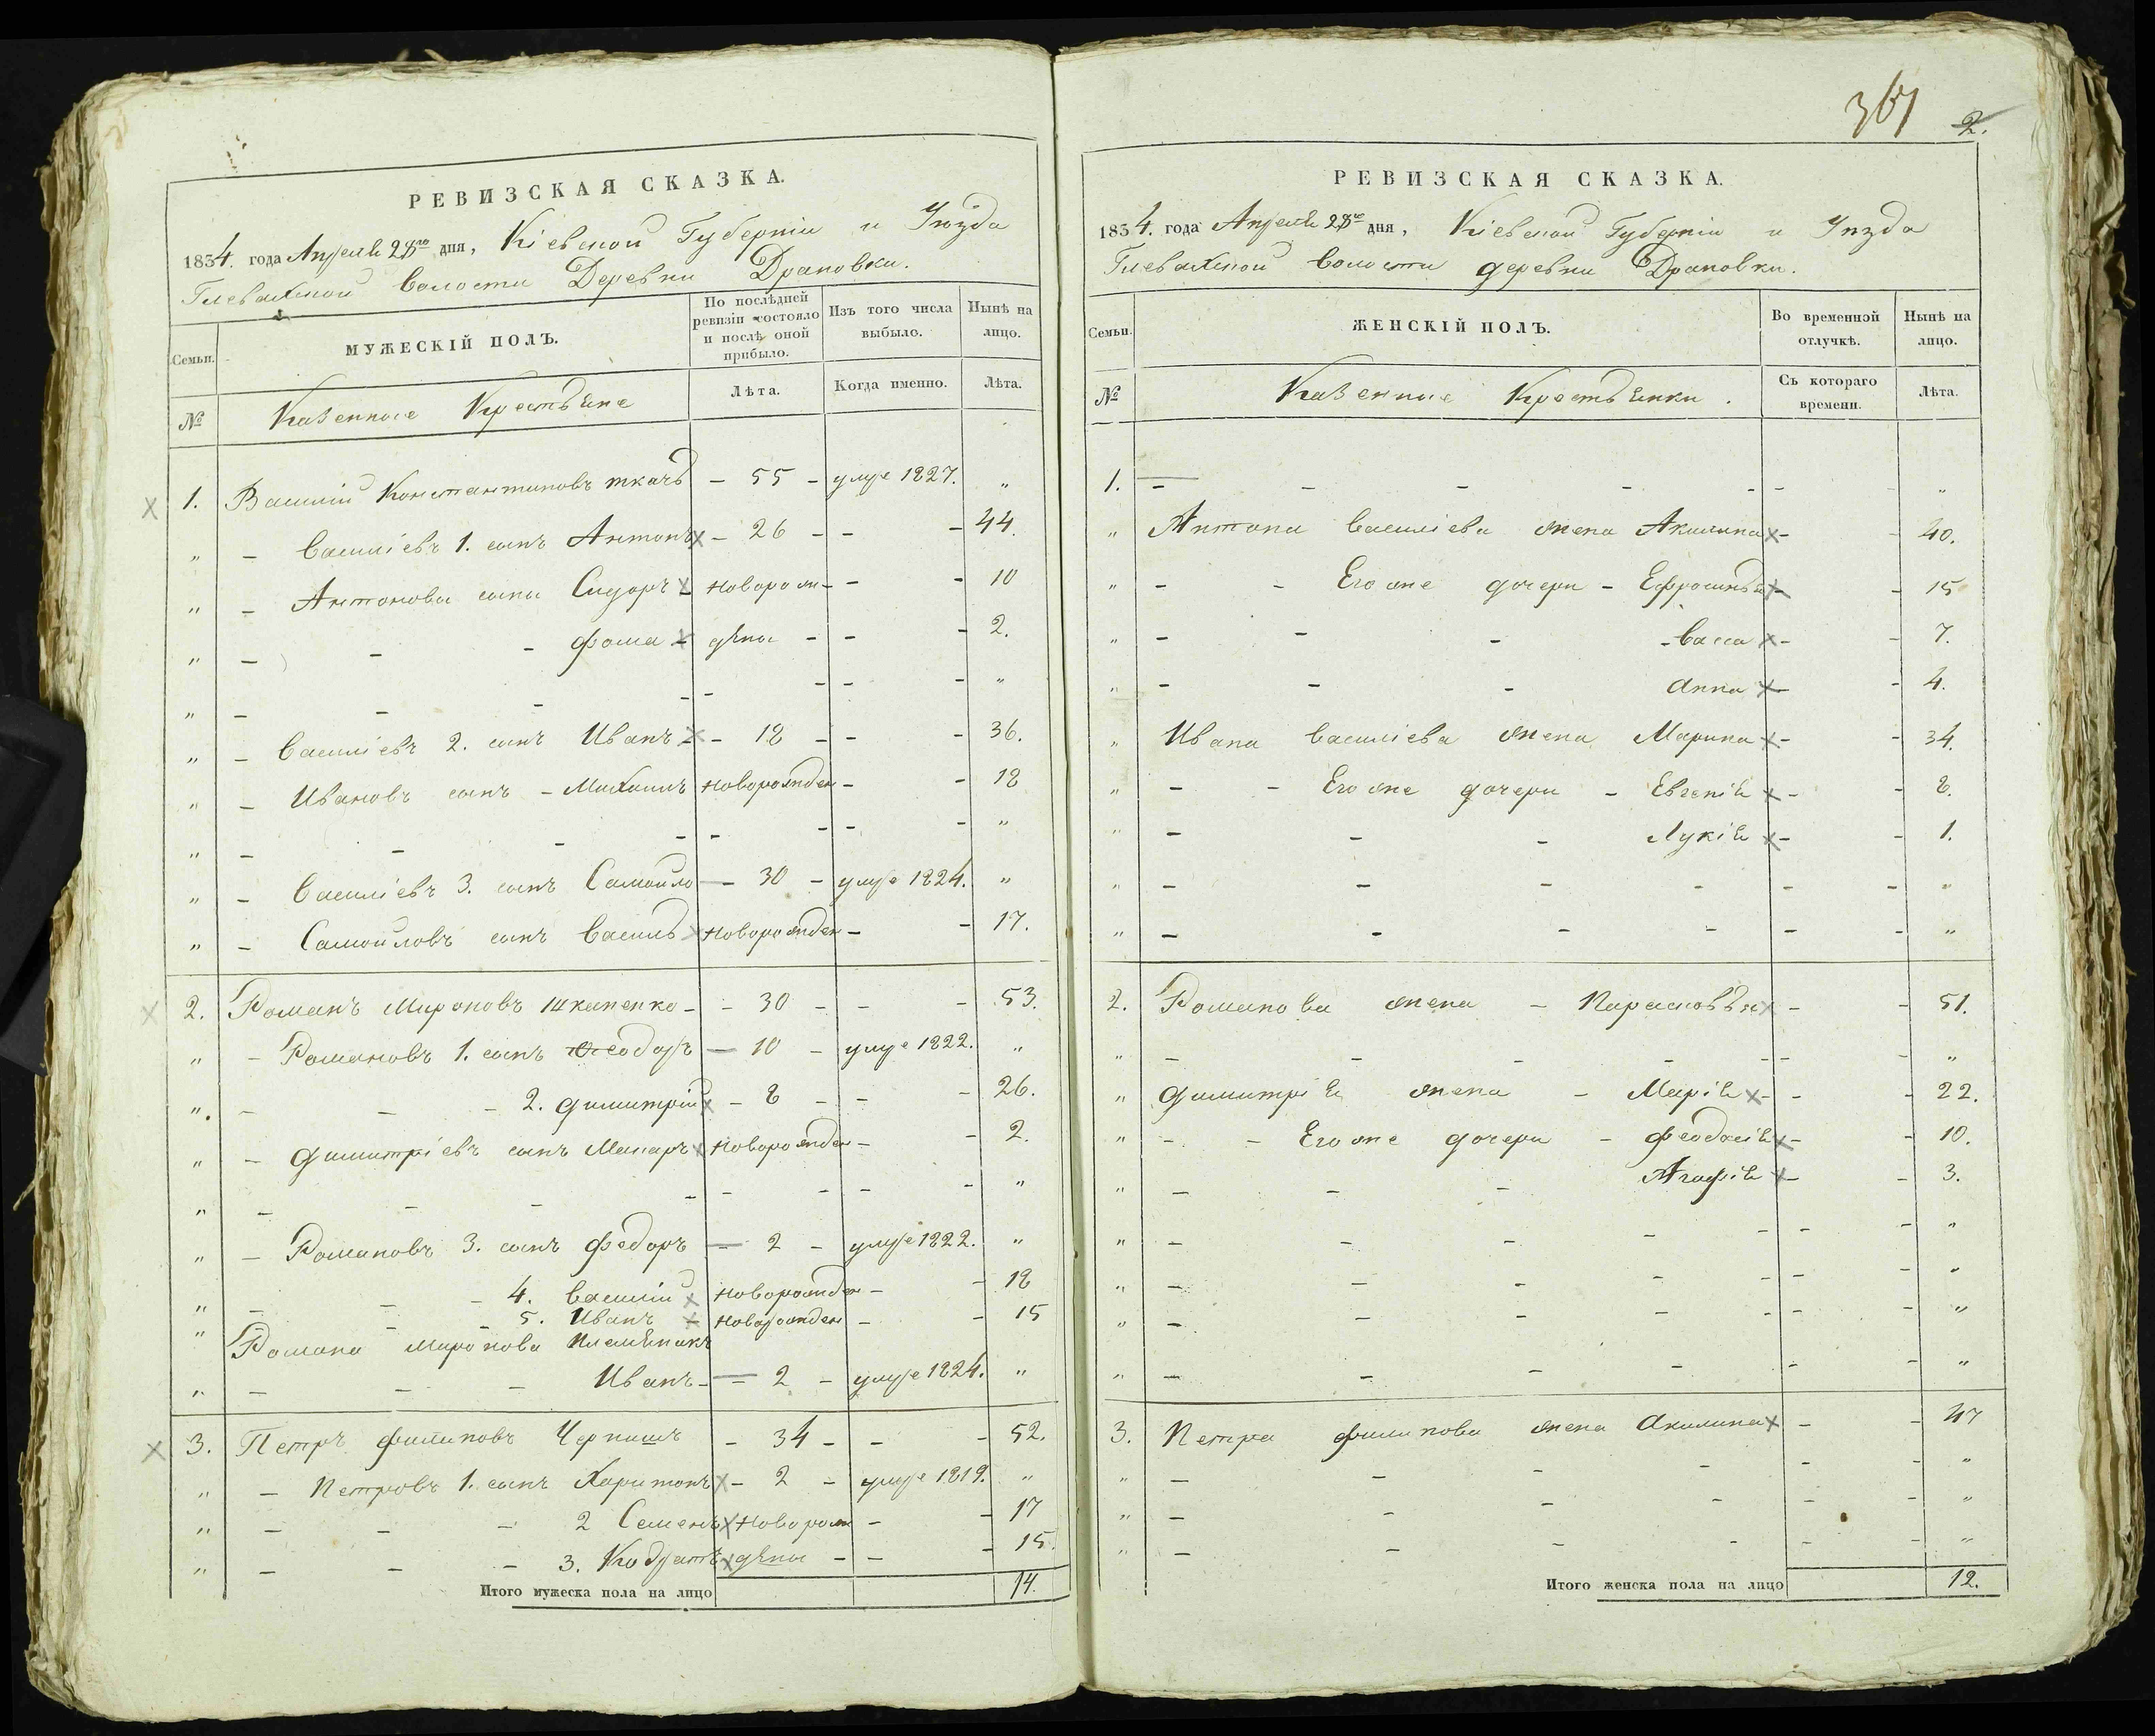 РЕВИЗСКАЯ СКАЗКА.
1834. года Апреля 28го дня, Кіевской Губерніи и Уѣзда
Глевахской Волости Деревни Драновки.
Семьи. МУЖЕСКІЙ ПОЛЪ. По послѣдней ревизіи состояло и послѣ оной прибыло. Изъ того числа выбыло. Нынѣ на лицо.
№ Казенные Крестьяне Лѣта. Когда именно. Лѣта.
1. Василій Константиновъ ткачь - 55 - умре 1827. "
" - Василіевъ 1. сынъ Антонъ - 26 - - - 44.
" - Антонова сыны Сидоръ - новорож- - - 10
" - - - Фома - дены - - - 2.
" - - - - - - - - "
" - Василіевъ 2. сынъ Иванъ - - 18 - - - 36.
" - Ивановъ сынъ - Михаилъ новорожден - - 18
" - - - - - - - - "
" - Василіевъ 3. сынъ Самойло - 30 - умре 1824. "
" - Самойловъ сынъ Василь новорожден - - 17.
2. Романъ Мироновъ Шкапенко - - 30 - - - 53.
" - Романовъ 1. сынъ Феодоръ - 10 - умре 1822. "
" - - - 2. Димитрій - 8 - - - 26.
" - Димитріевъ сынъ Макаръ новорожден - - 2.
" - - - - - - - - "
" - Романовъ 3. сынъ Федоръ - 2 - умре 1822. "
" - - - 4. Василій новорожден - - 18
" - - 5. Иванъ - новорожден - - 15
Романа Миронова племянникъ
" - - - Иванъ - - 2 - умре 1824. "
3. Петръ Филиповъ Чернишъ - 34 - - - 52.
" - Петровъ 1. сынъ Харитонъ - 2 - умре 1819. "
" - - - 2 Семенъ новорож - - 17
" - - - 3. Кодратъ дены - - - 15.
Итого мужеска пола на лицо 14.
367 2.
РЕВИЗСКАЯ СКАЗКА.
1834. года Апреля 28го дня, Кіевской Губерніи и Уѣзда
Глевахской Волости деревни Драновки.
Семьи. ЖЕНСКІЙ ПОЛЪ. Во временной отлучкѣ. Нынѣ на лицо.
№ Казенные Крестьянки. Съ котораго времени. Лѣта.
1. - - - - - - "
" Антона Василіева жена Акилина - - 40.
" - - Его же дочери - Ефросинья - - 15
" - - - - Васса - - 7.
" - - - Анна - - 4.
" Ивана Василіева жена Марина - - 34.
" - - Его же дочери - Евгенія - - 8.
" - - - Лукія - - 1.
" - - - - - - "
" - - - - - - "
2. Романова жена - Парасковья - - 51.
" - - - - - - - "
" Димитрія жена - Марія - - 22.
" - - Его же дочери - Феодосія - - 10.
" - - - Агафія - - 3.
" - - - - - - - "
" - - - - - - - "
" - - - - - - - "
" - - - - - - "
3. Петра Филипова жена Акилина - - 47
" - - - - - - "
" - - - - - - "
" - - - - - - "
Итого женска пола на лицо 12.